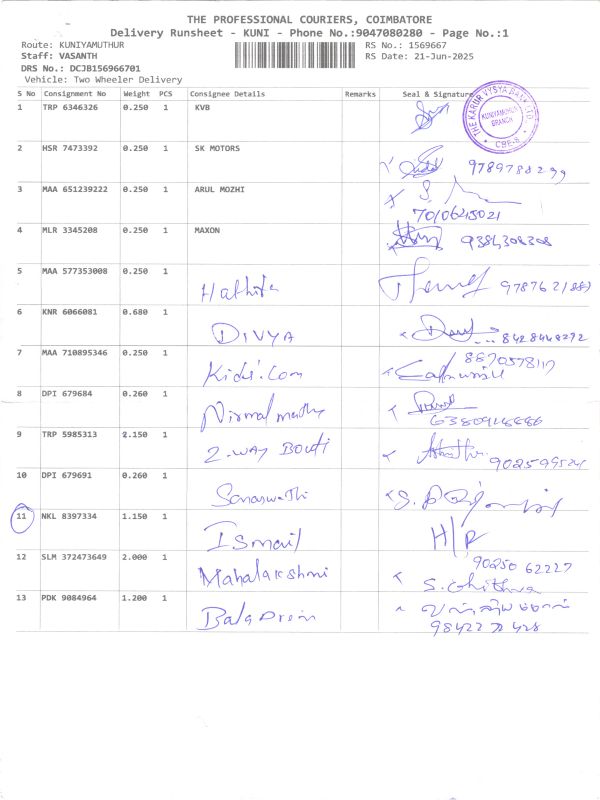 THE PROFESSIONAL COURIERS, COIMBATORE
Delivery Runsheet - KUNI - Phone No.:9047080280 - Page No.:1
Route: KUNIYAMUTHUR RS No.: 1569667
Staff: VASANTH RS Date: 21-Jun-2025
DRS No.: DCJB156966701
Vehicle: Two Wheeler Delivery
S No Consignment No Weight PCS Consignee Details Remarks Seal & Signature
1 TRP 6346326 0.250 1 KVB
THE KARUR VYSYA BANK LTD
KUNIYAMUTHUR
BRANCH
CBE-8
2 HSR 7473392 0.250 1 SK MOTORS
9789788299
3 MAA 651239222 0.250 1 ARUL MOZHI
7010645021
4 MLR 3345208 0.250 1 MAXON
9384308308
5 MAA 577353008 0.250 1
6 KNR 6066081 0.680 1 DIVYA
8428448272
7 MAA 710895346 0.250 1 Kidi.com
8870578117
8 DPI 679684 0.260 1 Nirmal
9 TRP 5985313 2.150 1 2-WAY BOUTI
10 DPI 679691 0.260 1 Saraswathi
11 NKL 8397334 1.150 1 Ismail H/R
12 SLM 372473649 2.000 1 Mahalakshmi
90250 62227
S. Chithra
13 PDK 9084964 1.200 1 Bala
98422 72428